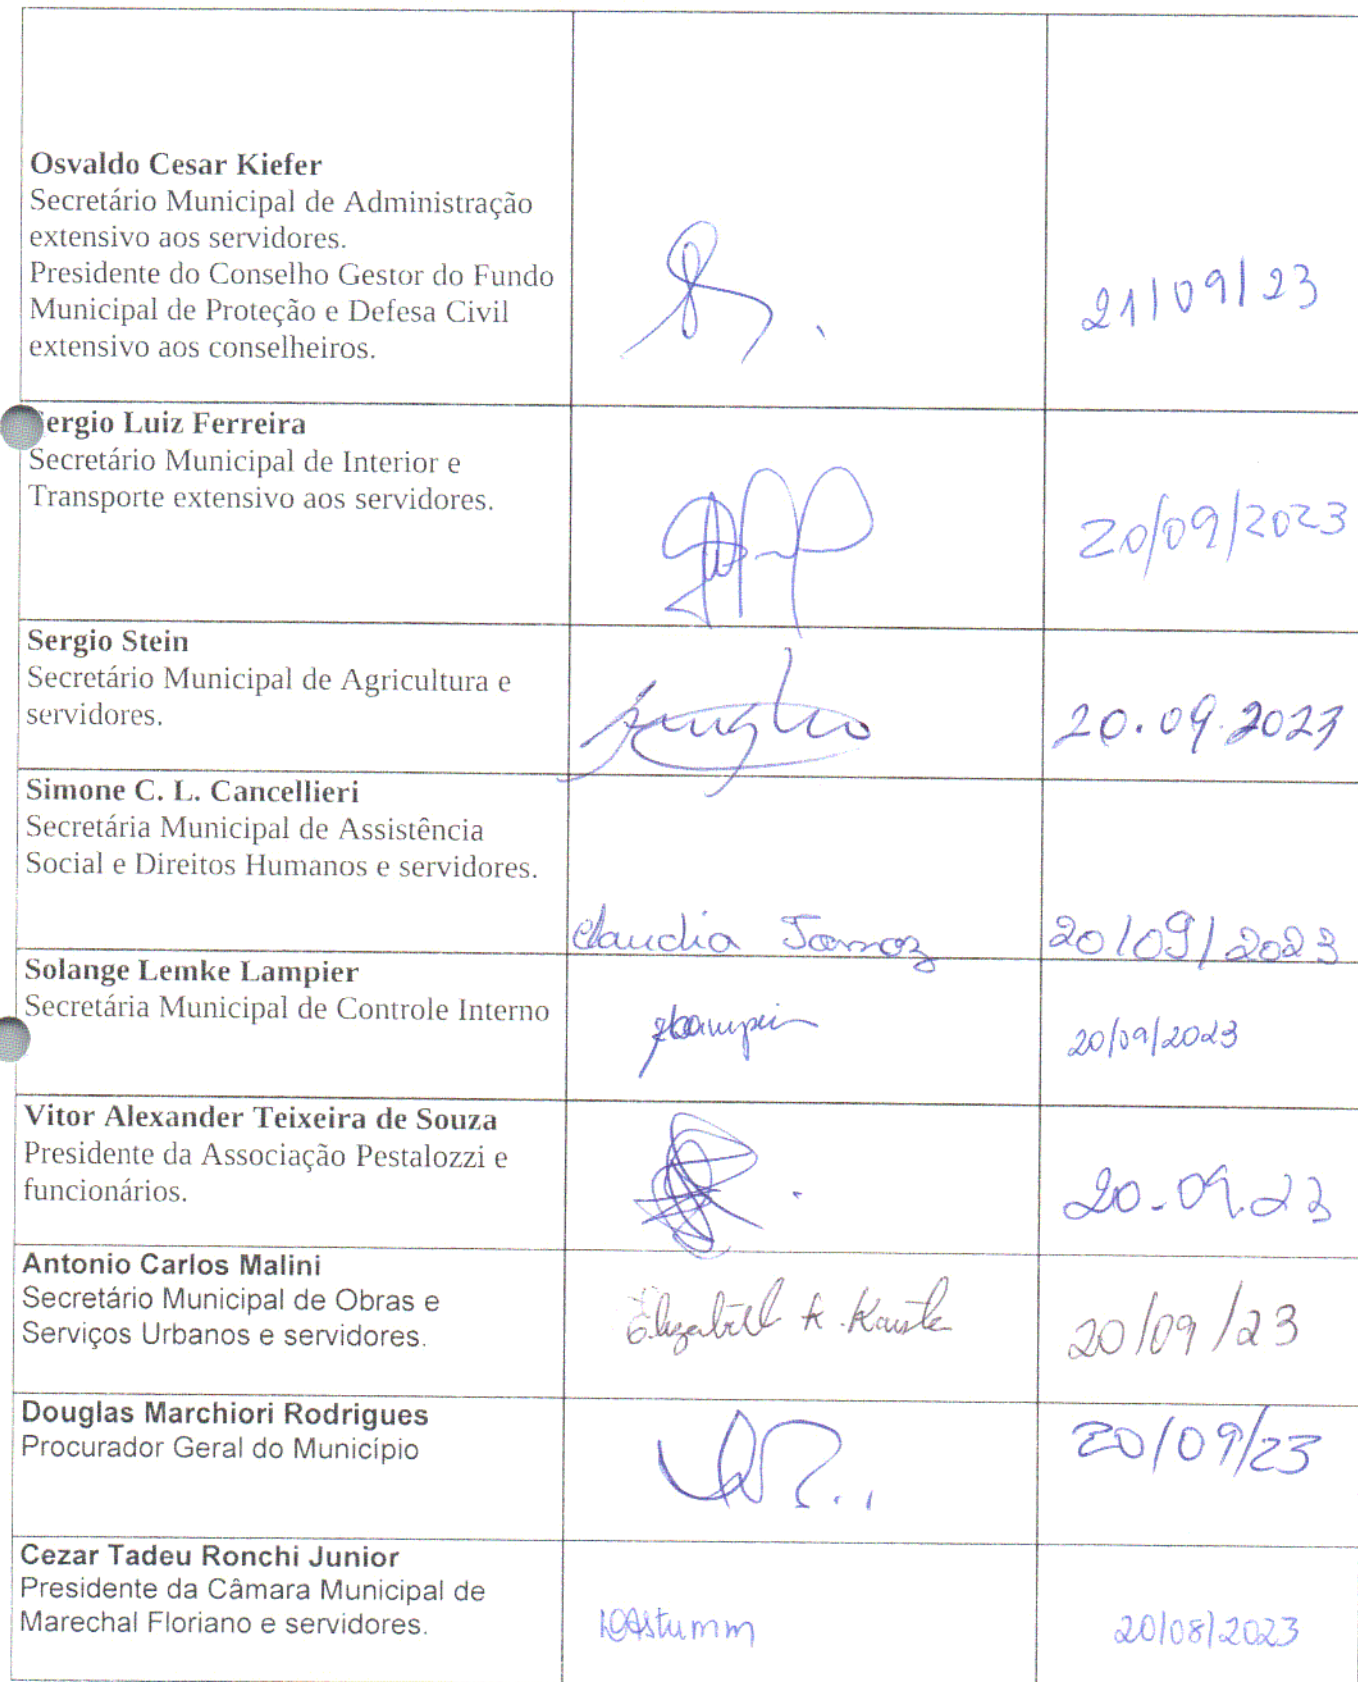 Osvaldo Cesar Kiefer
Secretário Municipal de Administração
extensivo aos servidores.
Presidente do Conselho Gestor do Fundo
Municipal de Proteção e Defesa Civil
extensivo aos conselheiros.
21/09/23
ergio Luiz Ferreira
Secretário Municipal de Interior e
Transporte extensivo aos servidores.
20/09/2023
Sergio Stein
Secretário Municipal de Agricultura e
servidores.
20.09.2023
Simone C. L. Cancellieri
Secretária Municipal de Assistência
Social e Direitos Humanos e servidores.
Claudia
20/09/2023
Solange Lemke Lampier
Secretária Municipal de Controle Interno
20/09/2023
Vitor Alexander Teixeira de Souza
Presidente da Associação Pestalozzi e
funcionários.
20.09.23
Antonio Carlos Malini
Secretário Municipal de Obras e
Serviços Urbanos e servidores.
20/09/23
Douglas Marchiori Rodrigues
Procurador Geral do Município
20/09/23
Cezar Tadeu Ronchi Junior
Presidente da Câmara Municipal de
Marechal Floriano e servidores.
20/08/2023